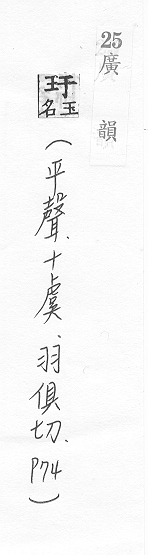 25廣韻
玗玉名
(平聲、十虞、羽俱切、P74)